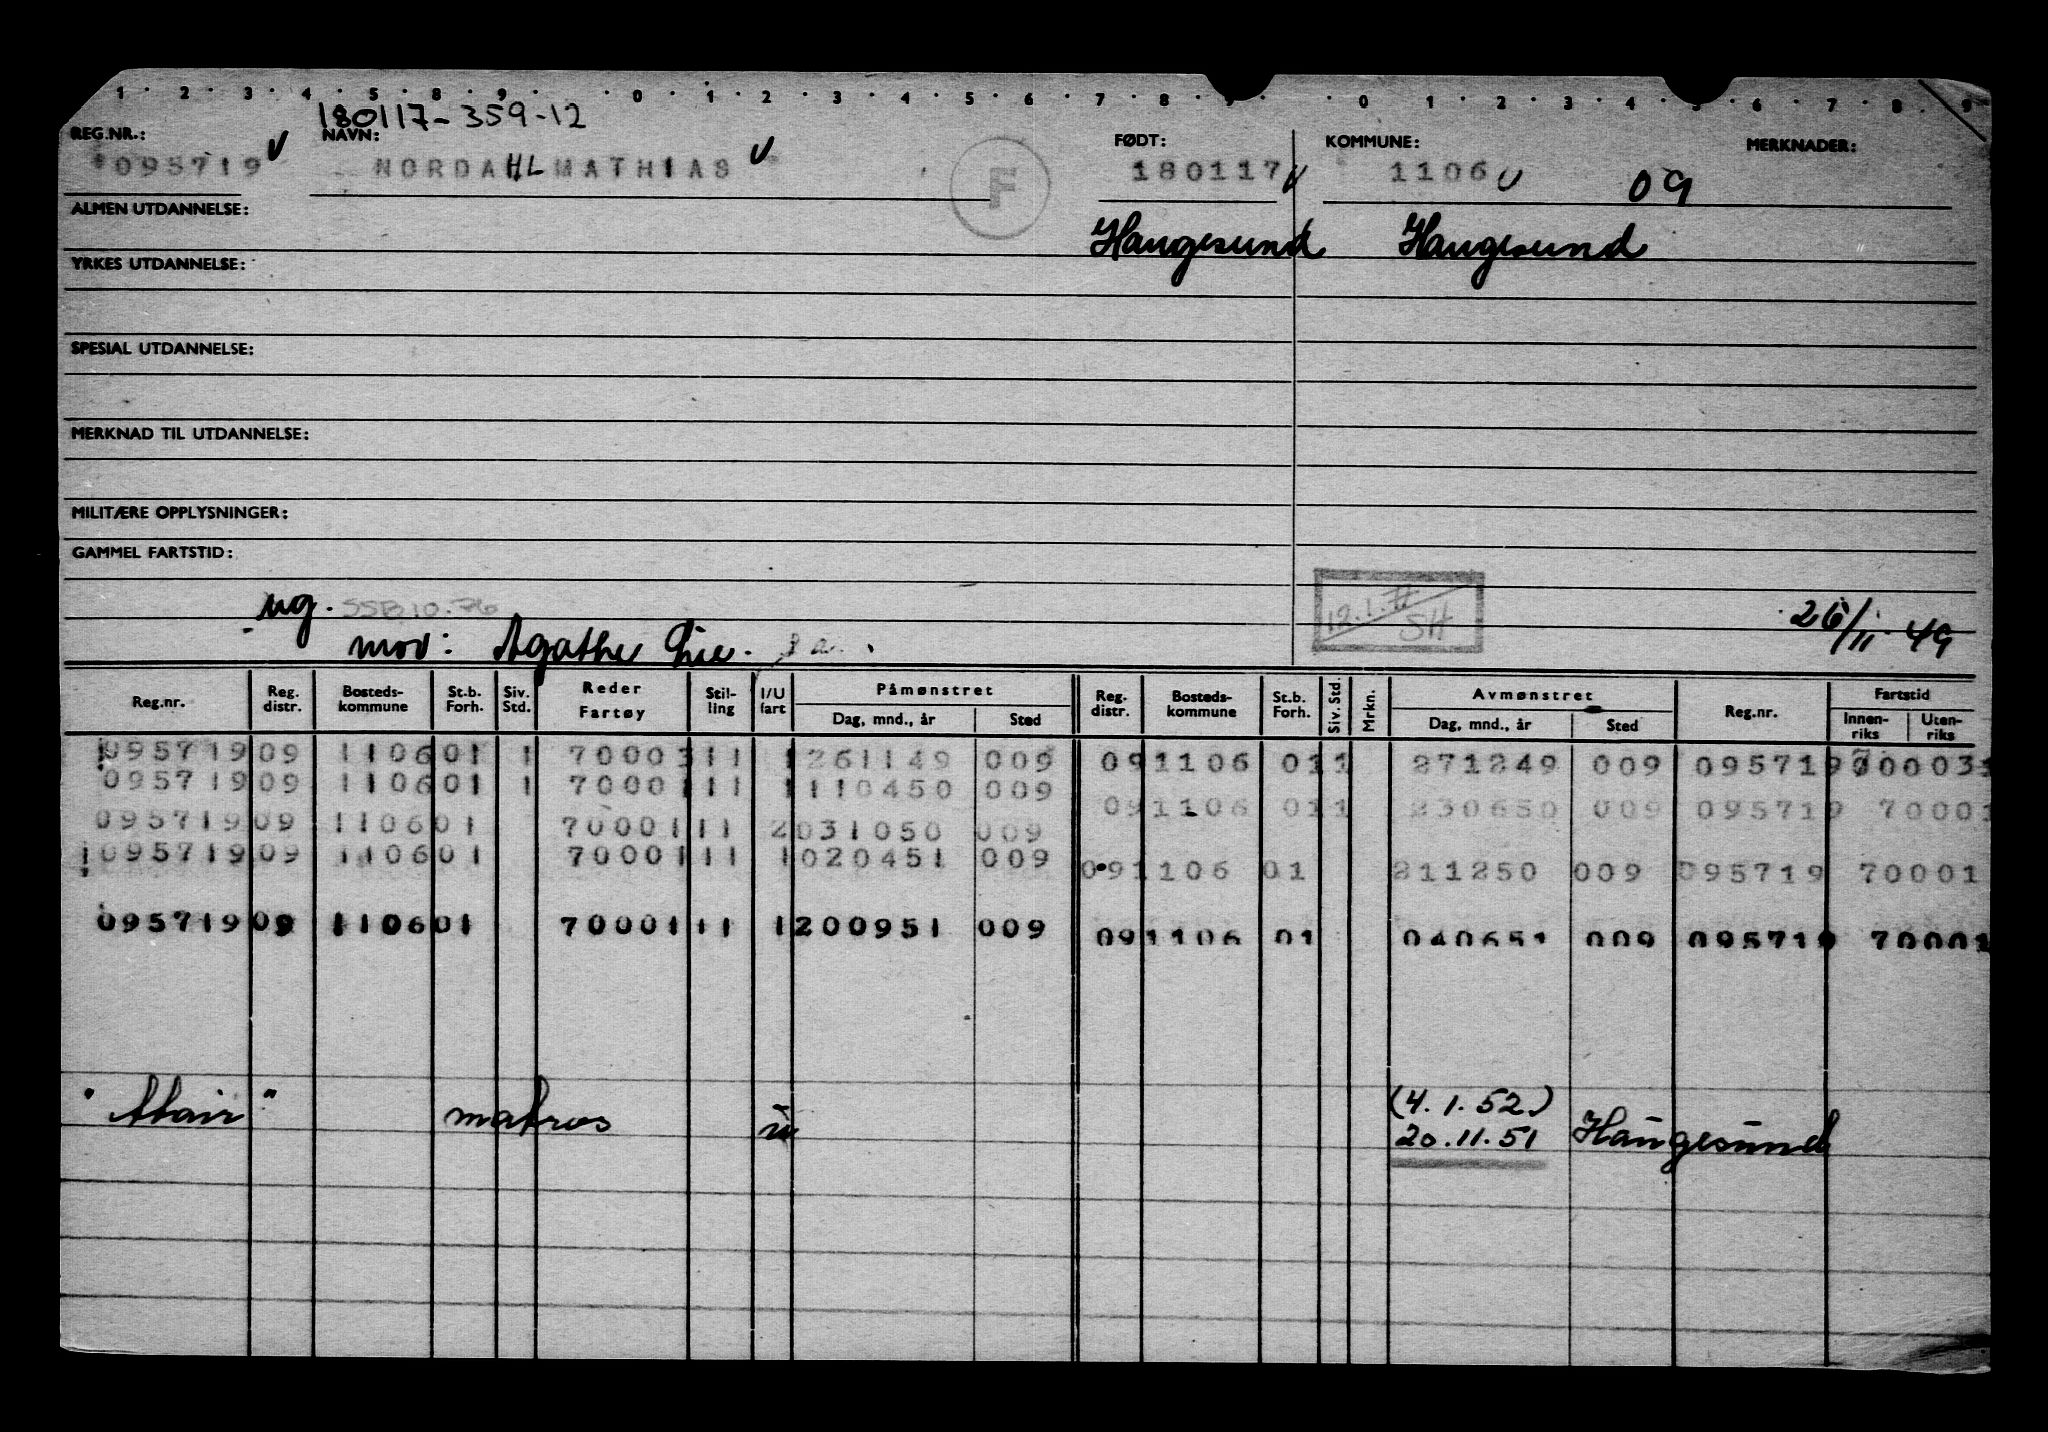 1 · 2 · 3 · 4 · 5 · 8 · 9 · · 0 · 1 · 2 · 3 · 4 · 5 · 6 · 7 · 8 · 9 · · 0 · 1 · 2 · 3 · 4 · 5 · 6 · 7 · 8 · 9
180117-359-12
REG.NR.: NAVN: FØDT: KOMMUNE: MERKNADER:
095719 NORDAHL MATHIAS F 180117 1106 09
ALMEN UTDANNELSE: Haugesund Haugesund
YRKES UTDANNELSE:
SPESIAL UTDANNELSE:
MERKNAD TIL UTDANNELSE:
MILITÆRE OPPLYSNINGER:
GAMMEL FARTSTID:
ug. SSB 10.76 12.1.77 SH 26/11-49
mor: Agathe Lie.
Reg.nr. Reg. distr. Bosteds-kommune St.b. Forh. Siv. Std. Reder Fartøy Stil-ling I/U fart Påmønstret Dag, mnd., år Sted Reg. distr. Bosteds-kommune St.b. Forh. Siv. Std. Mrkn. Avmønstret Dag, mnd., år Sted Reg.nr. Fartstid Innen-riks Uten-riks
095719 09 1106 01 1 70003 11 1 261149 009 09 1106 01 1 271249 009 095719 70003
095719 09 1106 01 1 70001 11 1 110450 009 09 1106 01 1 230650 009 095719 70001
095719 09 1106 01 70001 11 2 031050 009
095719 09 1106 01 70001 11 1 020451 009 09 1106 01 211250 009 095719 70001
095719 09 1106 01 70001 11 1 200951 009 09 1106 01 040651 009 095719 70001
(4.1.52)
"Atair" matros u 20.11.51 Haugesund